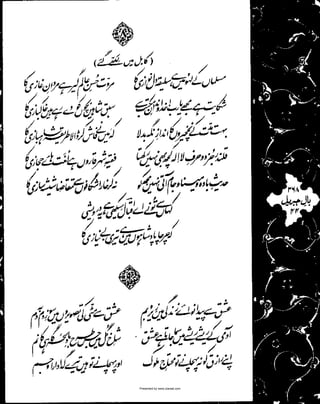 (کابل میں لکھے گئے)
مسلماں کے لہو میں ہے سلیقہ دل نوازی کا مروّت حُسنِ عالم گیر ہے مردانِ غازی کا
شکایت ہے مجھے یا رب خداوندانِ مکتب سے سبق شاہیں بچوں کو دے رہے ہیں خاکبازی کا
بہت مدت کے نخچیروں کا اندازِ نگہ بدلا کہ میں نے فاش کر ڈالا طریقہ شاہبازی کا
قلندر جز دو حرفِ لا الٰہ کچھ بھی نہیں رکھتا فقیہِ شہر قاروں ہے لغت ہائے حجازی کا
حدیثِ بادہ و مینا و جام آتی نہیں مجھ کو نہ کر خارا شگافوں سے تقاضا شیشہ سازی کا
کہاں سے تُو نے اے اقبال سیکھی ہے یہ درویشی
کہ چرچا پادشاہوں میں ہے تیری بے نیازی کا
عشق سے پیدا نوائے زندگی میں زیر و بم عشق سے مٹی کی تصویروں میں سوزِ دم بہ دم
آدمی کے ریشے ریشے میں سما جاتا ہے عشق شاخِ گل میں جس طرح بادِ سحر گاہی کا نم
اپنے رازق کو نہ پہچانے تو محتاجِ ملوک اور پہچانے تو ہیں تیرے گدا دارا و جم
بالِ جبریل
Presented by www.ziaraat.com